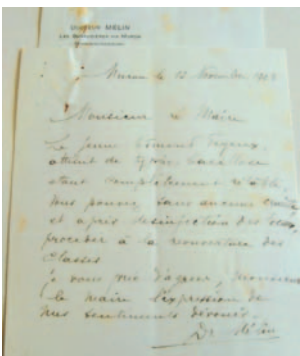 Docteur MÉLIN
Muron le 13 Novembre 190
Monsieur le Maire
Le jeune Edmond
atteint de
étant complètement rétabli,
vous pouvez, sans aucune crainte
et après désinfection des
procéder à la réouverture des
classes
Je vous prie d'agréer, Monsieur
le maire l'expression de
mes sentiments dévoués.
Dr Mélin